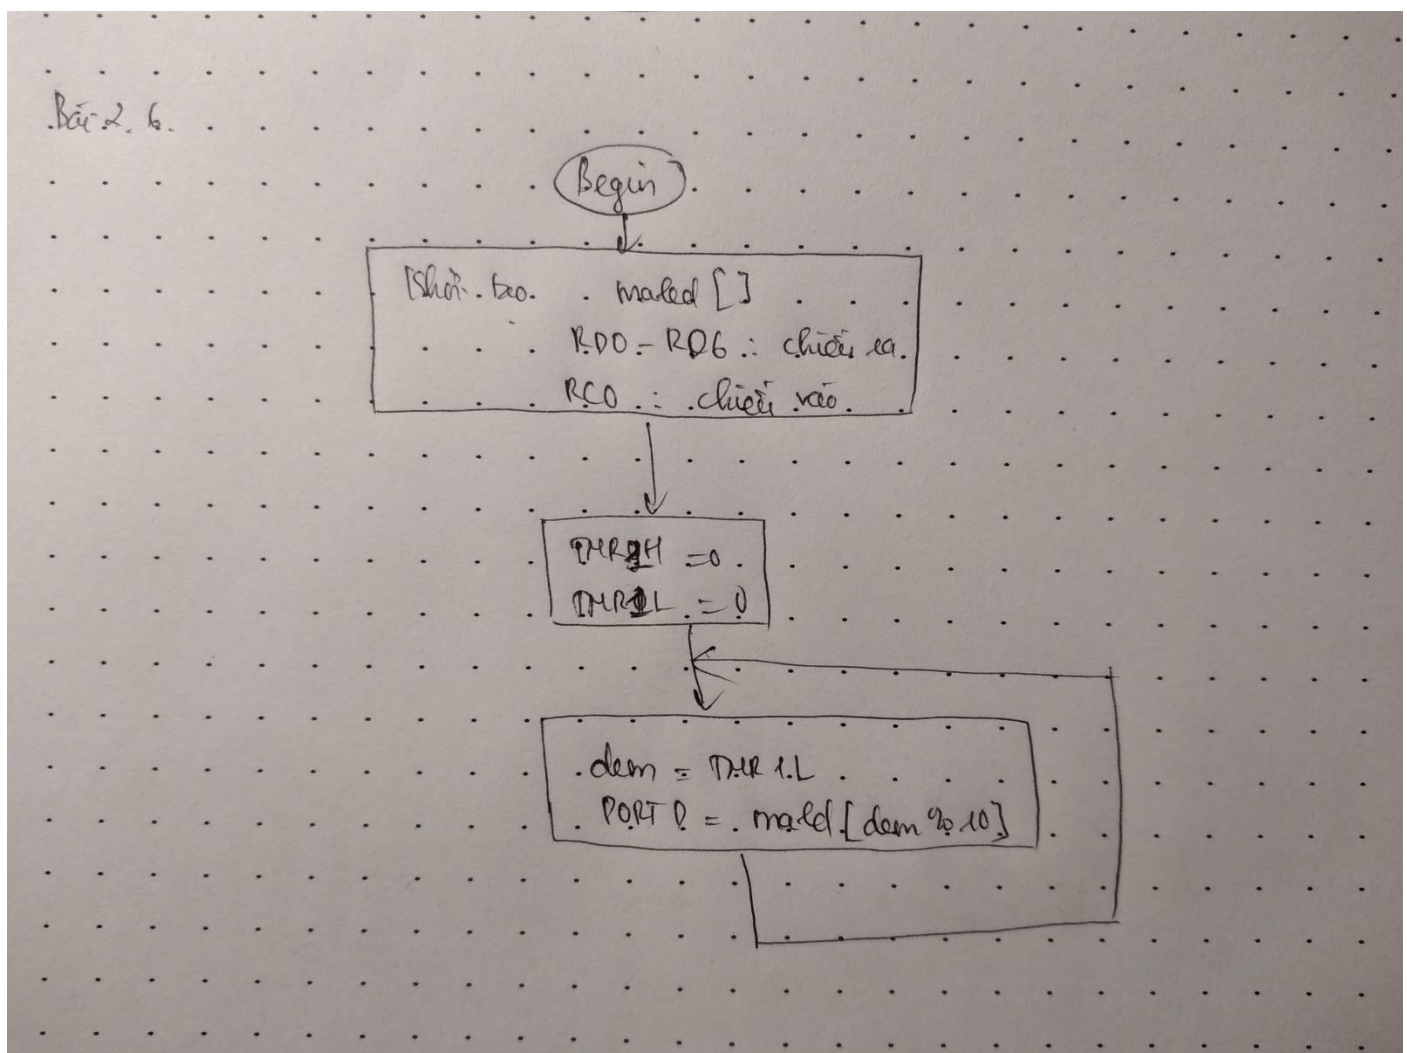 Bài 2.6.
Begin
Khởi tạo maled []
RD0 - RD6 : chiều ra.
RC0 : chiều vào.
TMR1H = 0
TMR1L = 0
dem = TMR1L
PORTD = maled [dem % 10]